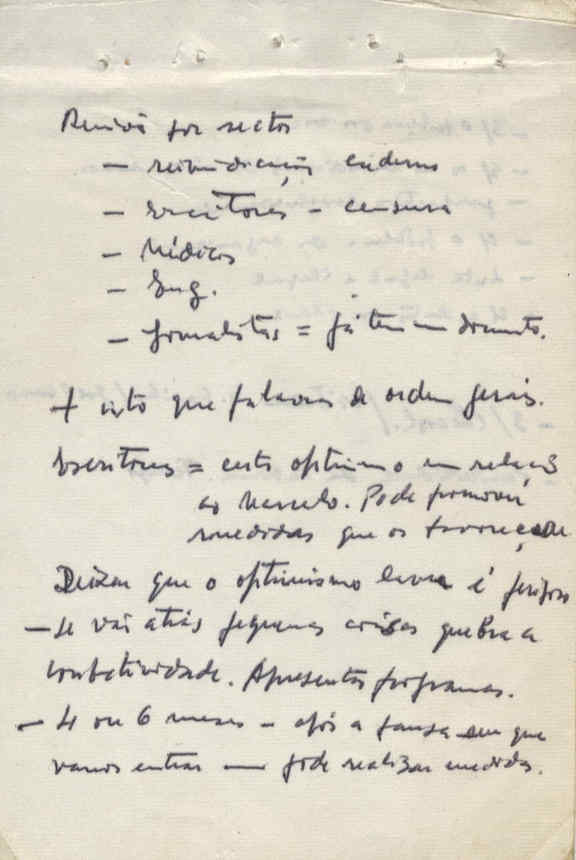 Reunião por sector
— reivindicações caderno
— Escritores – censura
— Médicos
— Eng.
— Jornalistas = já tem um documto.
+ isto que palavras de ordem gerais.
Escritores = certo optimismo em relação
ao Marcelo. Pode promover
medidas que os favoreçam
Dizer que o optimismo leva é perigoso
— se vai atrás pequenas coisas quebra a
combatividade. Apresentar programas.
— 4 ou 6 meses – após a pausa em que
vamos entrar — pode realizar medidas.